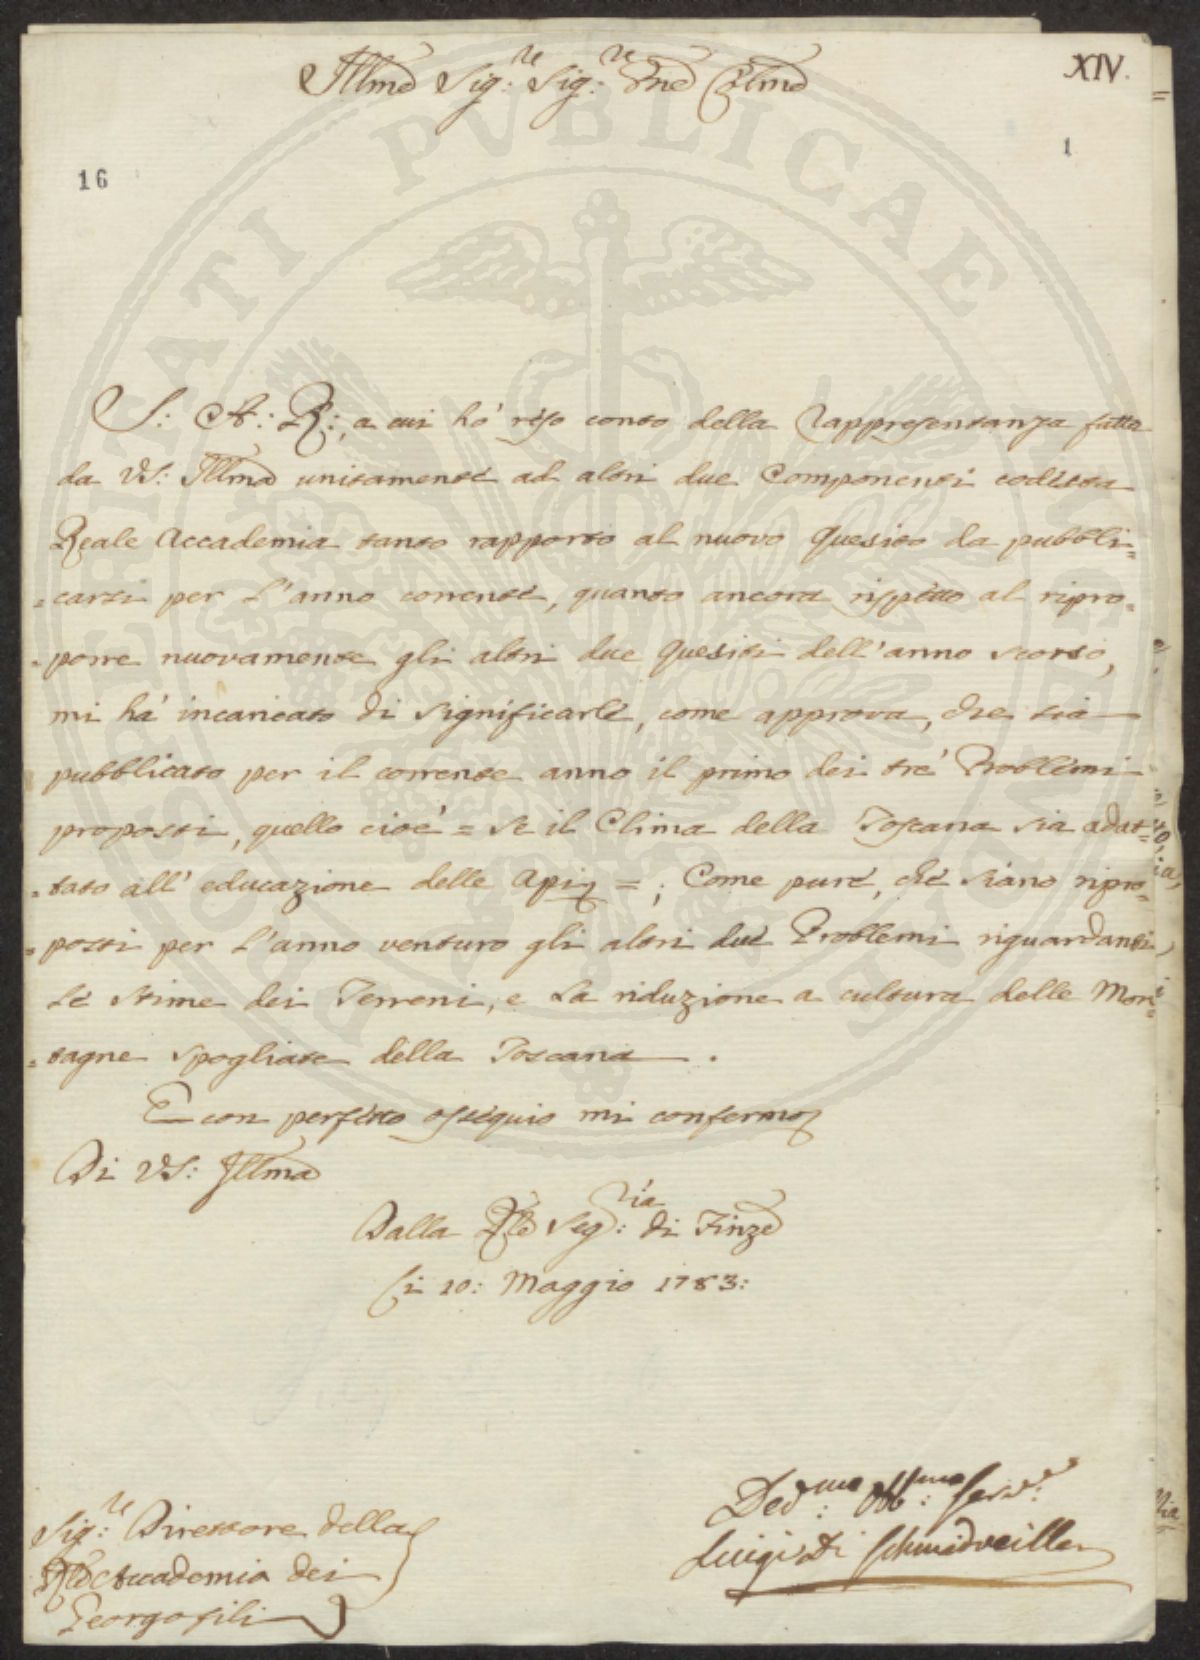 XIV.
Illmo Sig:re Sig:re Pne Colmo
1
16
S: A: R:, a cui hò reso conto della rappresentanza fatta
da VS: Illma unitamente ad altri due Componenti codesta
Reale Accademia tanto rapporto al nuovo Quesito da pubbli=
=carsi per l'anno corrente, quanto ancora rispetto al ripro=
=porre nuovamente gli altri due Quesiti dell'anno scorso,
mi hà incaricato di significarle, come approva, che sia
pubblicato per il corrente anno il primo dei trè Problemi
proposti, quello cioè = Se il Clima della Toscana sia adat=
=tato all'educazione delle Api =; Come pure, che siano ripro=
=posti per l'anno venturo gli altri due Problemi riguardanti
le stime dei Terreni, e la riduzione a cultura delle Mon=
=tagne spogliate della Toscana.
E con perfetto ossequio mi confermo
Di VS: Illma
Dalla Rle Seg:ria di Finze
li 10: Maggio 1783:
Sig:re Direttore della
Rle Accademia dei
Georgofili
Ded:mo Obb:mo Serv:re
Luigi di Schmidveiller
PUBLICAE